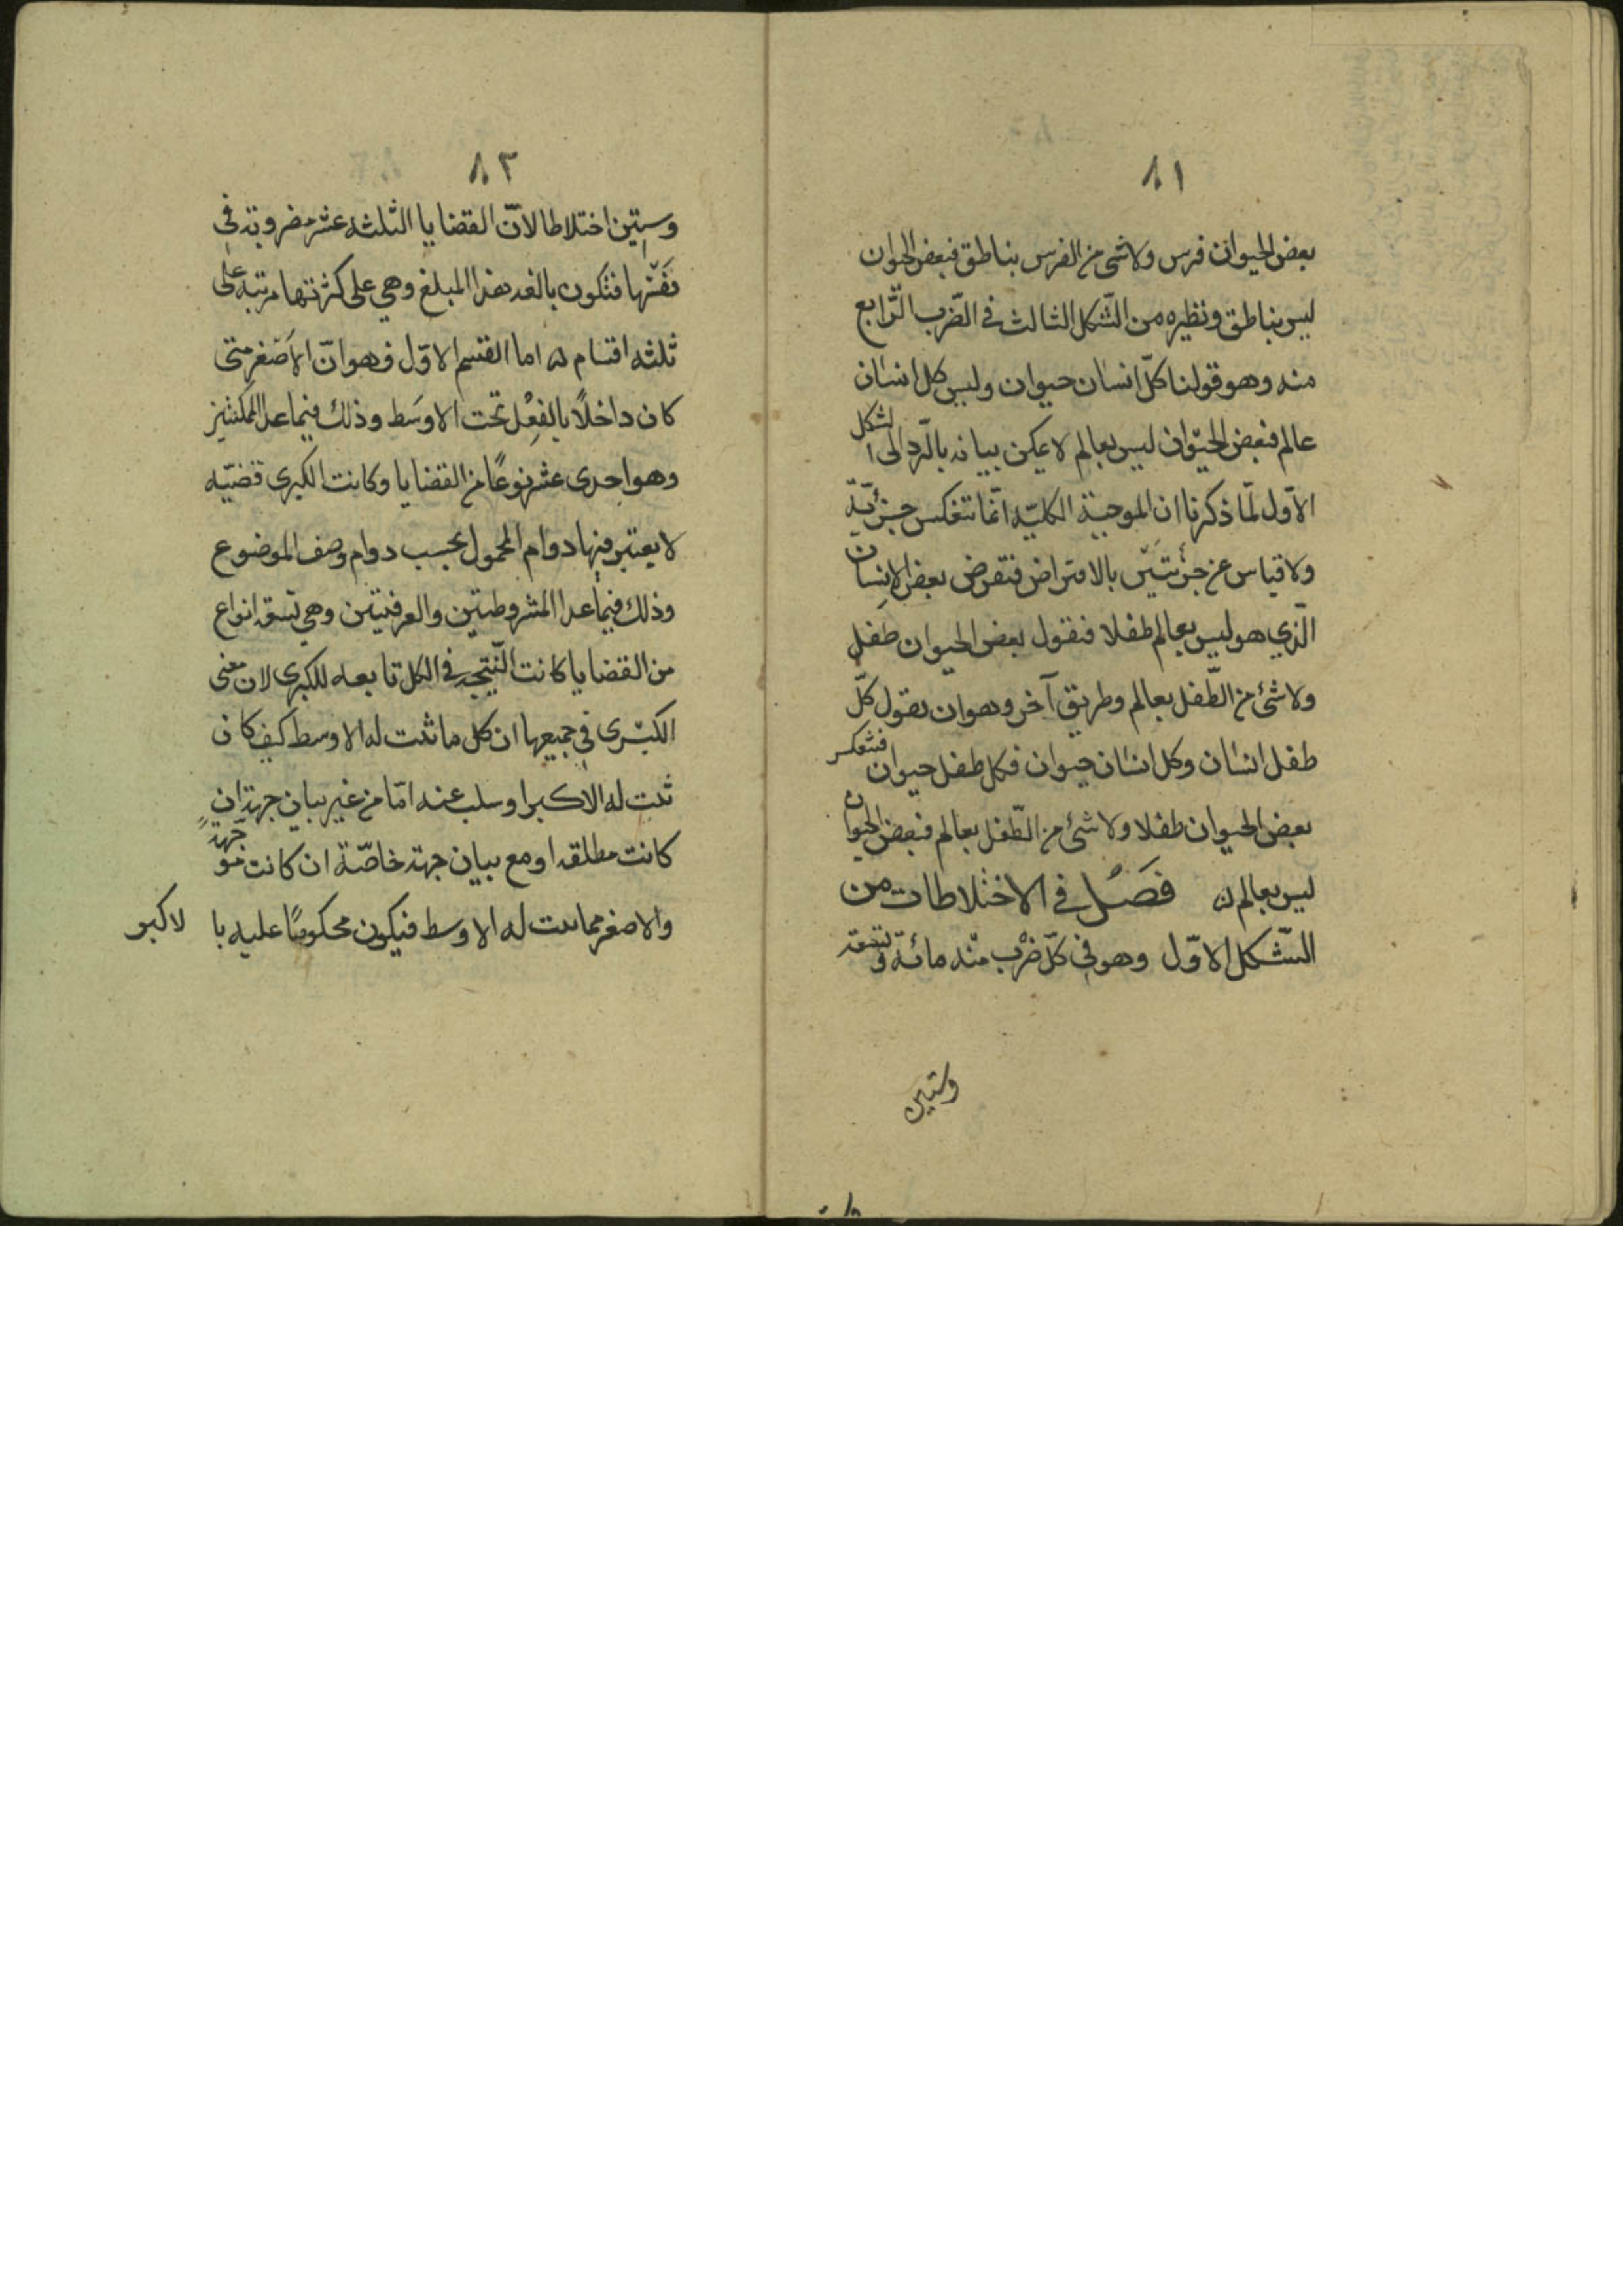 ٨١
بعض الحيوان فرس ولا شئ من الفرس بناطق فبعض الحيوان
ليس بناطق ونظيره من الشّكل الثالث في الضّرب الرّابع
منه وهو قولنا كلّ انسان حيوان وليس كل انسان
عالم فبعض الحيوان ليس بعالم لا يمكن بيانه بالرّد الى الشكل
الاوّل لمّا ذكرنا ان الموجبة الكليّه انّما تنعكس جزئيّة
ولا قياس عن جزئيتين بالافتراض فتفرض بعض الانسان
الّذي هو ليس بعالم طفلا فنقول بعض الحيوان طفل
ولا شئ من الطّفل بعالم وطريق آخر وهو ان نقول كلّ
طفل انسان وكل انسان حيوان فكل طفل حيوان فتنعكس
بعض الحيوان طفلا ولا شئ من الطّفل بعالم فبعض الحيوان
ليس بعالم فصل في الاختلاطات من
الشّكل الاوّل وهو في كلّ ضرب منه مائة وتسعة
وستين
٨٢
وستين اختلاطا لانّ القضايا الثلثه عشر مضروبة في
نفسها فتكون بالغه هذا المبلغ وهي على كثرتها مرتبه على
ثلثه اقسام اما القسم الاوّل فهو انّ الاصغر متى
كان داخلاً بالفعل تحت الاوسط وذلك فيما عدا الممكنتين
وهو احدى عشر نوعًا من القضايا وكانت الكبرى قضيّه
لا يعتبر فيها دوام المحمول بحسب دوام وصف الموضوع
وذلك فيما عدا المشروطتين والعرفيتين وهي تسعة انواع
من القضايا كانت النّتيجه في الكل تابعه للكبرى لان معنى
الكبرى في جميعها ان كل ما ثبت له الاوسط كيف كان
ثبت له الاكبر او سلب عنه امّا من غير بيان جهة ان
كانت مطلقه او مع بيان جهة خاصّة ان كانت موجهة
والاصغر مما ثبت له الاوسط فيكون محكومًا عليه با لاكبر